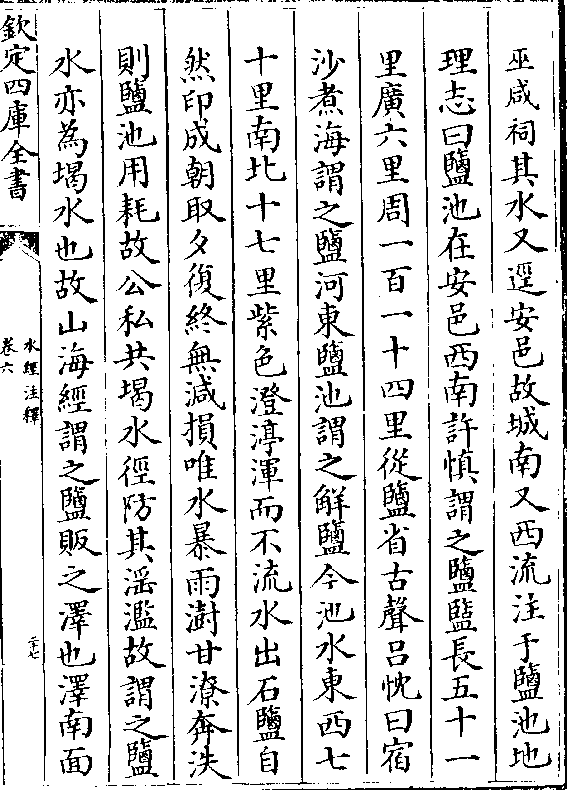 巫咸祠其水又逕安邑故城南又西流注于鹽池地
理志曰鹽池在安邑西南許慎謂之鹽鹽長五十一
里廣六里周一百一十四里從鹽省古聲吕忱曰宿
沙煮海謂之鹽河東鹽池謂之解鹽今池水東西七
十里南北十七里紫色澄渟渾而不流水出石鹽自
然印成朝取夕復終無減損唯水暴雨澍甘潦奔泆
則鹽池用耗故公私共堨水徑防其滛濫故謂之鹽
水亦為堨水也故山海經謂之鹽販之澤也澤南面
欽定四庫全書
水經注釋
卷六
二十七